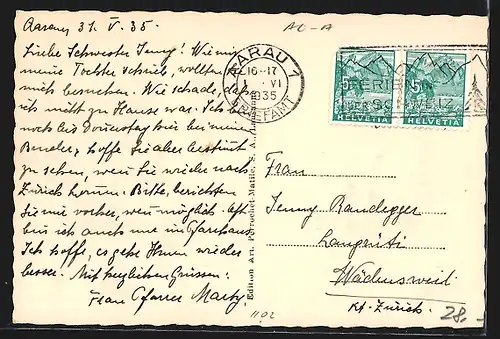 Aarau, 31. V. 35.
AG-A
Liebe Schwester Jenny! Wie mir
meine Tochter schrieb, wollten Sie
mich besuchen. Wie schade, dass
ich nicht zu Hause war. Ich bin
noch bis Donnerstag hier bei meinem
Bruder, hoffe Sie aber bestimmt
zu sehen, wenn Sie wieder nach
Zürich kommen. Bitte, berichten
Sie mir vorher, wenn möglich. Oft
bin ich auch nur im Pfarrhaus.
Ich hoffe, es gehe Ihnen wieder
besser. Mit herzlichen Grüssen:
Frau Pfarrer
AARAU 1
16-17
VI
1935
BRIEFAMT
5
5
HELVETIA
HELVETIA
Edition Art. Perrochet-Matile, S. A.
Frau
Jenny Bandegger
Wädenswil
Kt. Zürich.
1102
28.-